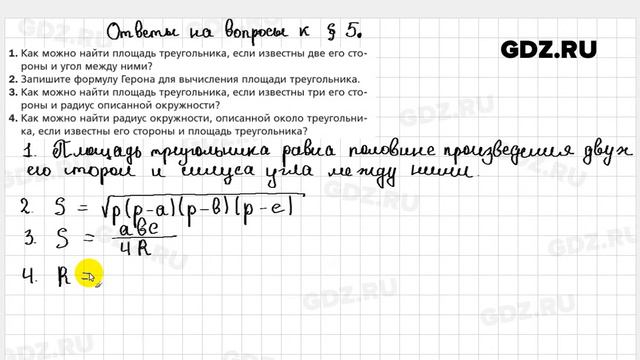 Ответы на вопросы к § 5.
GDZ.RU
1. Как можно найти площадь треугольника, если известны две его сто-
роны и угол между ними?
2. Запишите формулу Герона для вычисления площади треугольника.
3. Как можно найти площадь треугольника, если известны три его сто-
роны и радиус описанной окружности?
4. Как можно найти радиус окружности, описанной около треугольни-
ка, если известны его стороны и площадь треугольника?
1. Площадь треугольника равна половине произведения двух
его сторон и синуса угла между ними.
2. S = √p(p-a)(p-b)(p-c)
3. S = abc/4R
4. R =